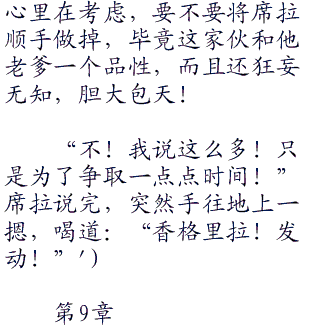 心里在考虑，要不要将席拉
顺手做掉，毕竟这家伙和他
老爹一个品性，而且还狂妄
无知，胆大包天！
“不！我说这么多！只
是为了争取一点点时间！”
席拉说完，突然手往地上一
摁，喝道：“香格里拉！发
动！”′)
第9章